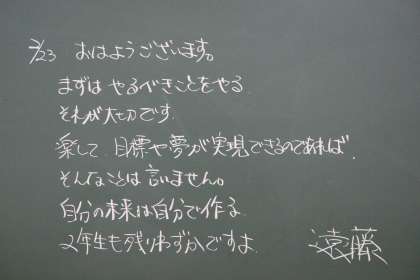 2/23 おはようございます。
まずは やるべきことをやる
それが大切です.
楽して、目標や夢が実現できるのであれば、
そんなことは言いません。
自分の未来は自分で作る
2年生も残りわずかですよ.
遠藤